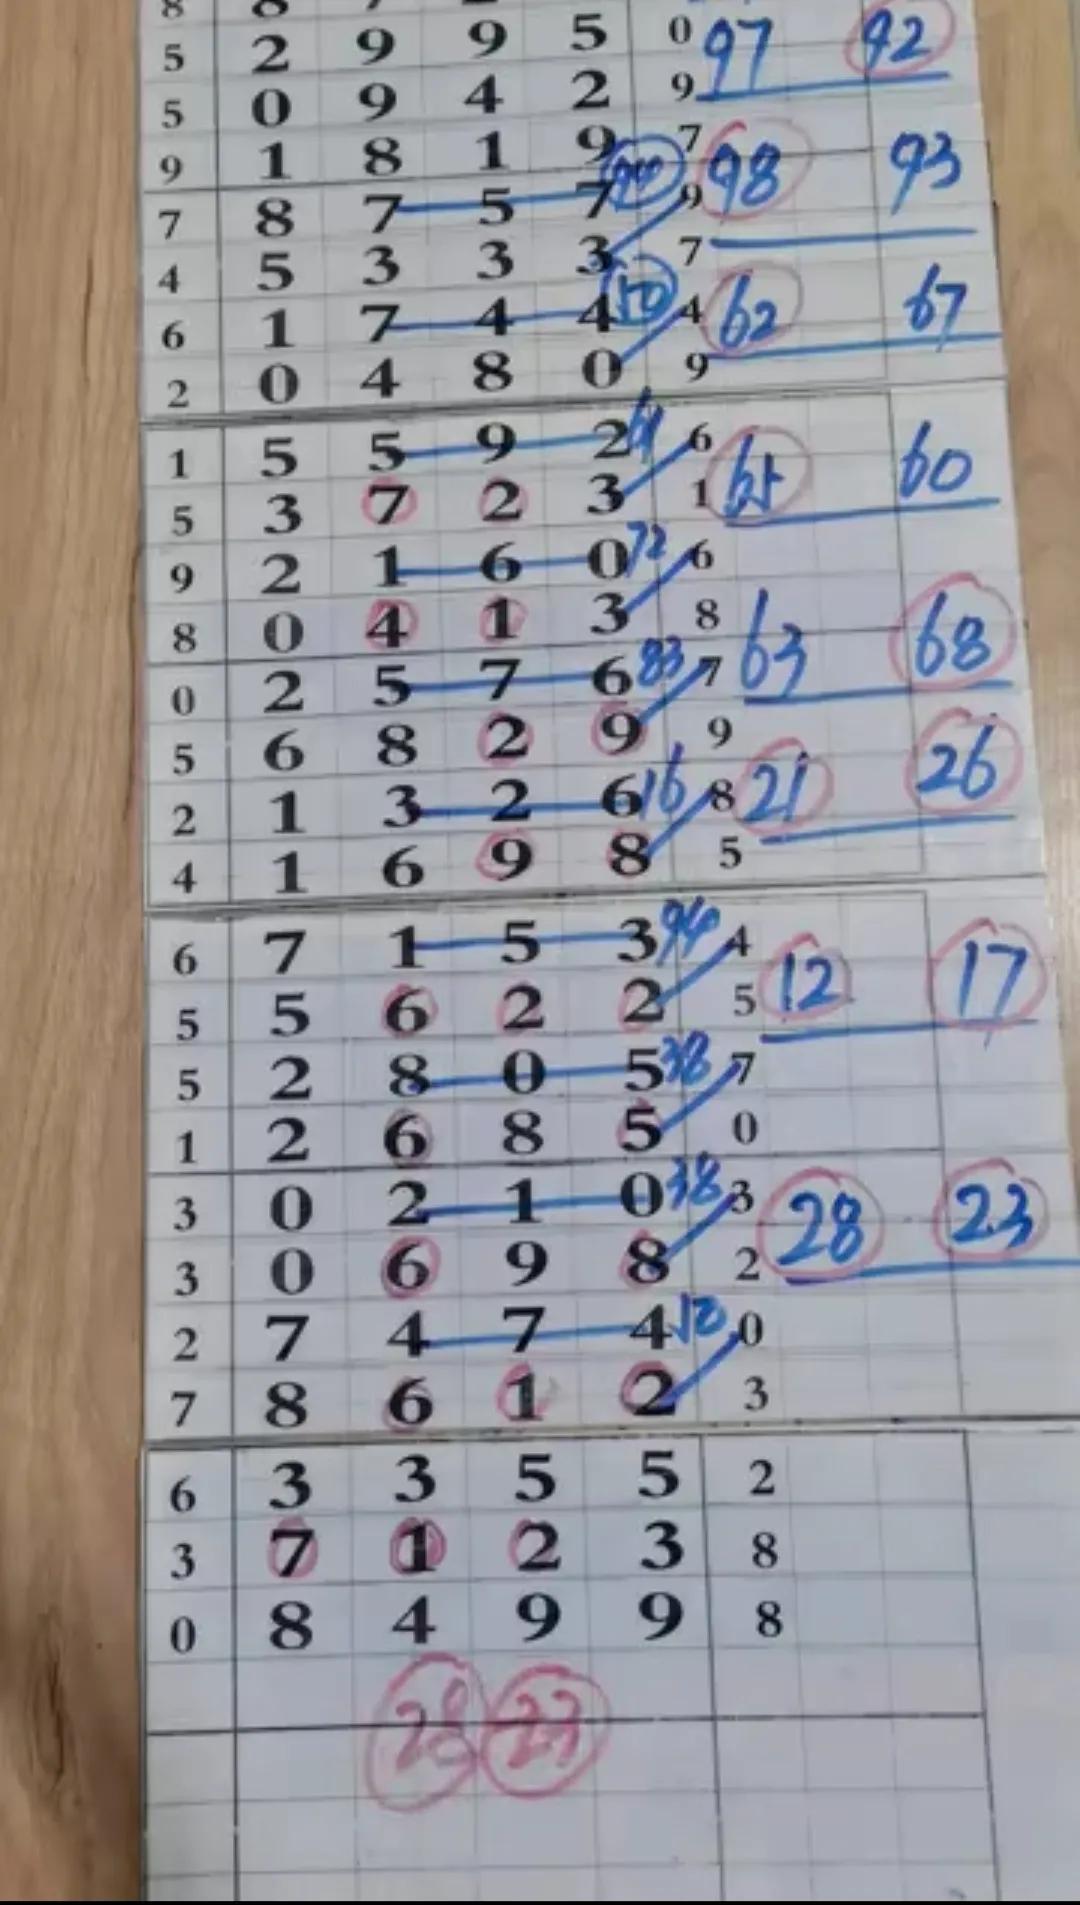 5 2 9 9 5 0 97 92
5 0 9 4 2 9
9 1 8 1 9 7 98 93
7 8 7 5 7 9
4 5 3 3 3 7
6 1 7 4 4 50 4 62 67
2 0 4 8 0 9
1 5 5 9 2 61 6
5 3 7 2 3 1 65 60
9 2 1 6 0 72 6
8 0 4 1 3 8 63 68
0 2 5 7 6 83 7
5 6 8 2 9 9
2 1 3 2 6 16 8 21 26
4 1 6 9 8 5
6 7 1 5 3 94 4 12 17
5 5 6 2 2 5
5 2 8 0 5 38 7
1 2 6 8 5 0
3 0 2 1 0 38 3 28 23
3 0 6 9 8 2
2 7 4 7 4 50 0
7 8 6 1 2 3
6 3 3 5 5 2
3 7 1 2 3 8
0 8 4 9 9 8
28 23